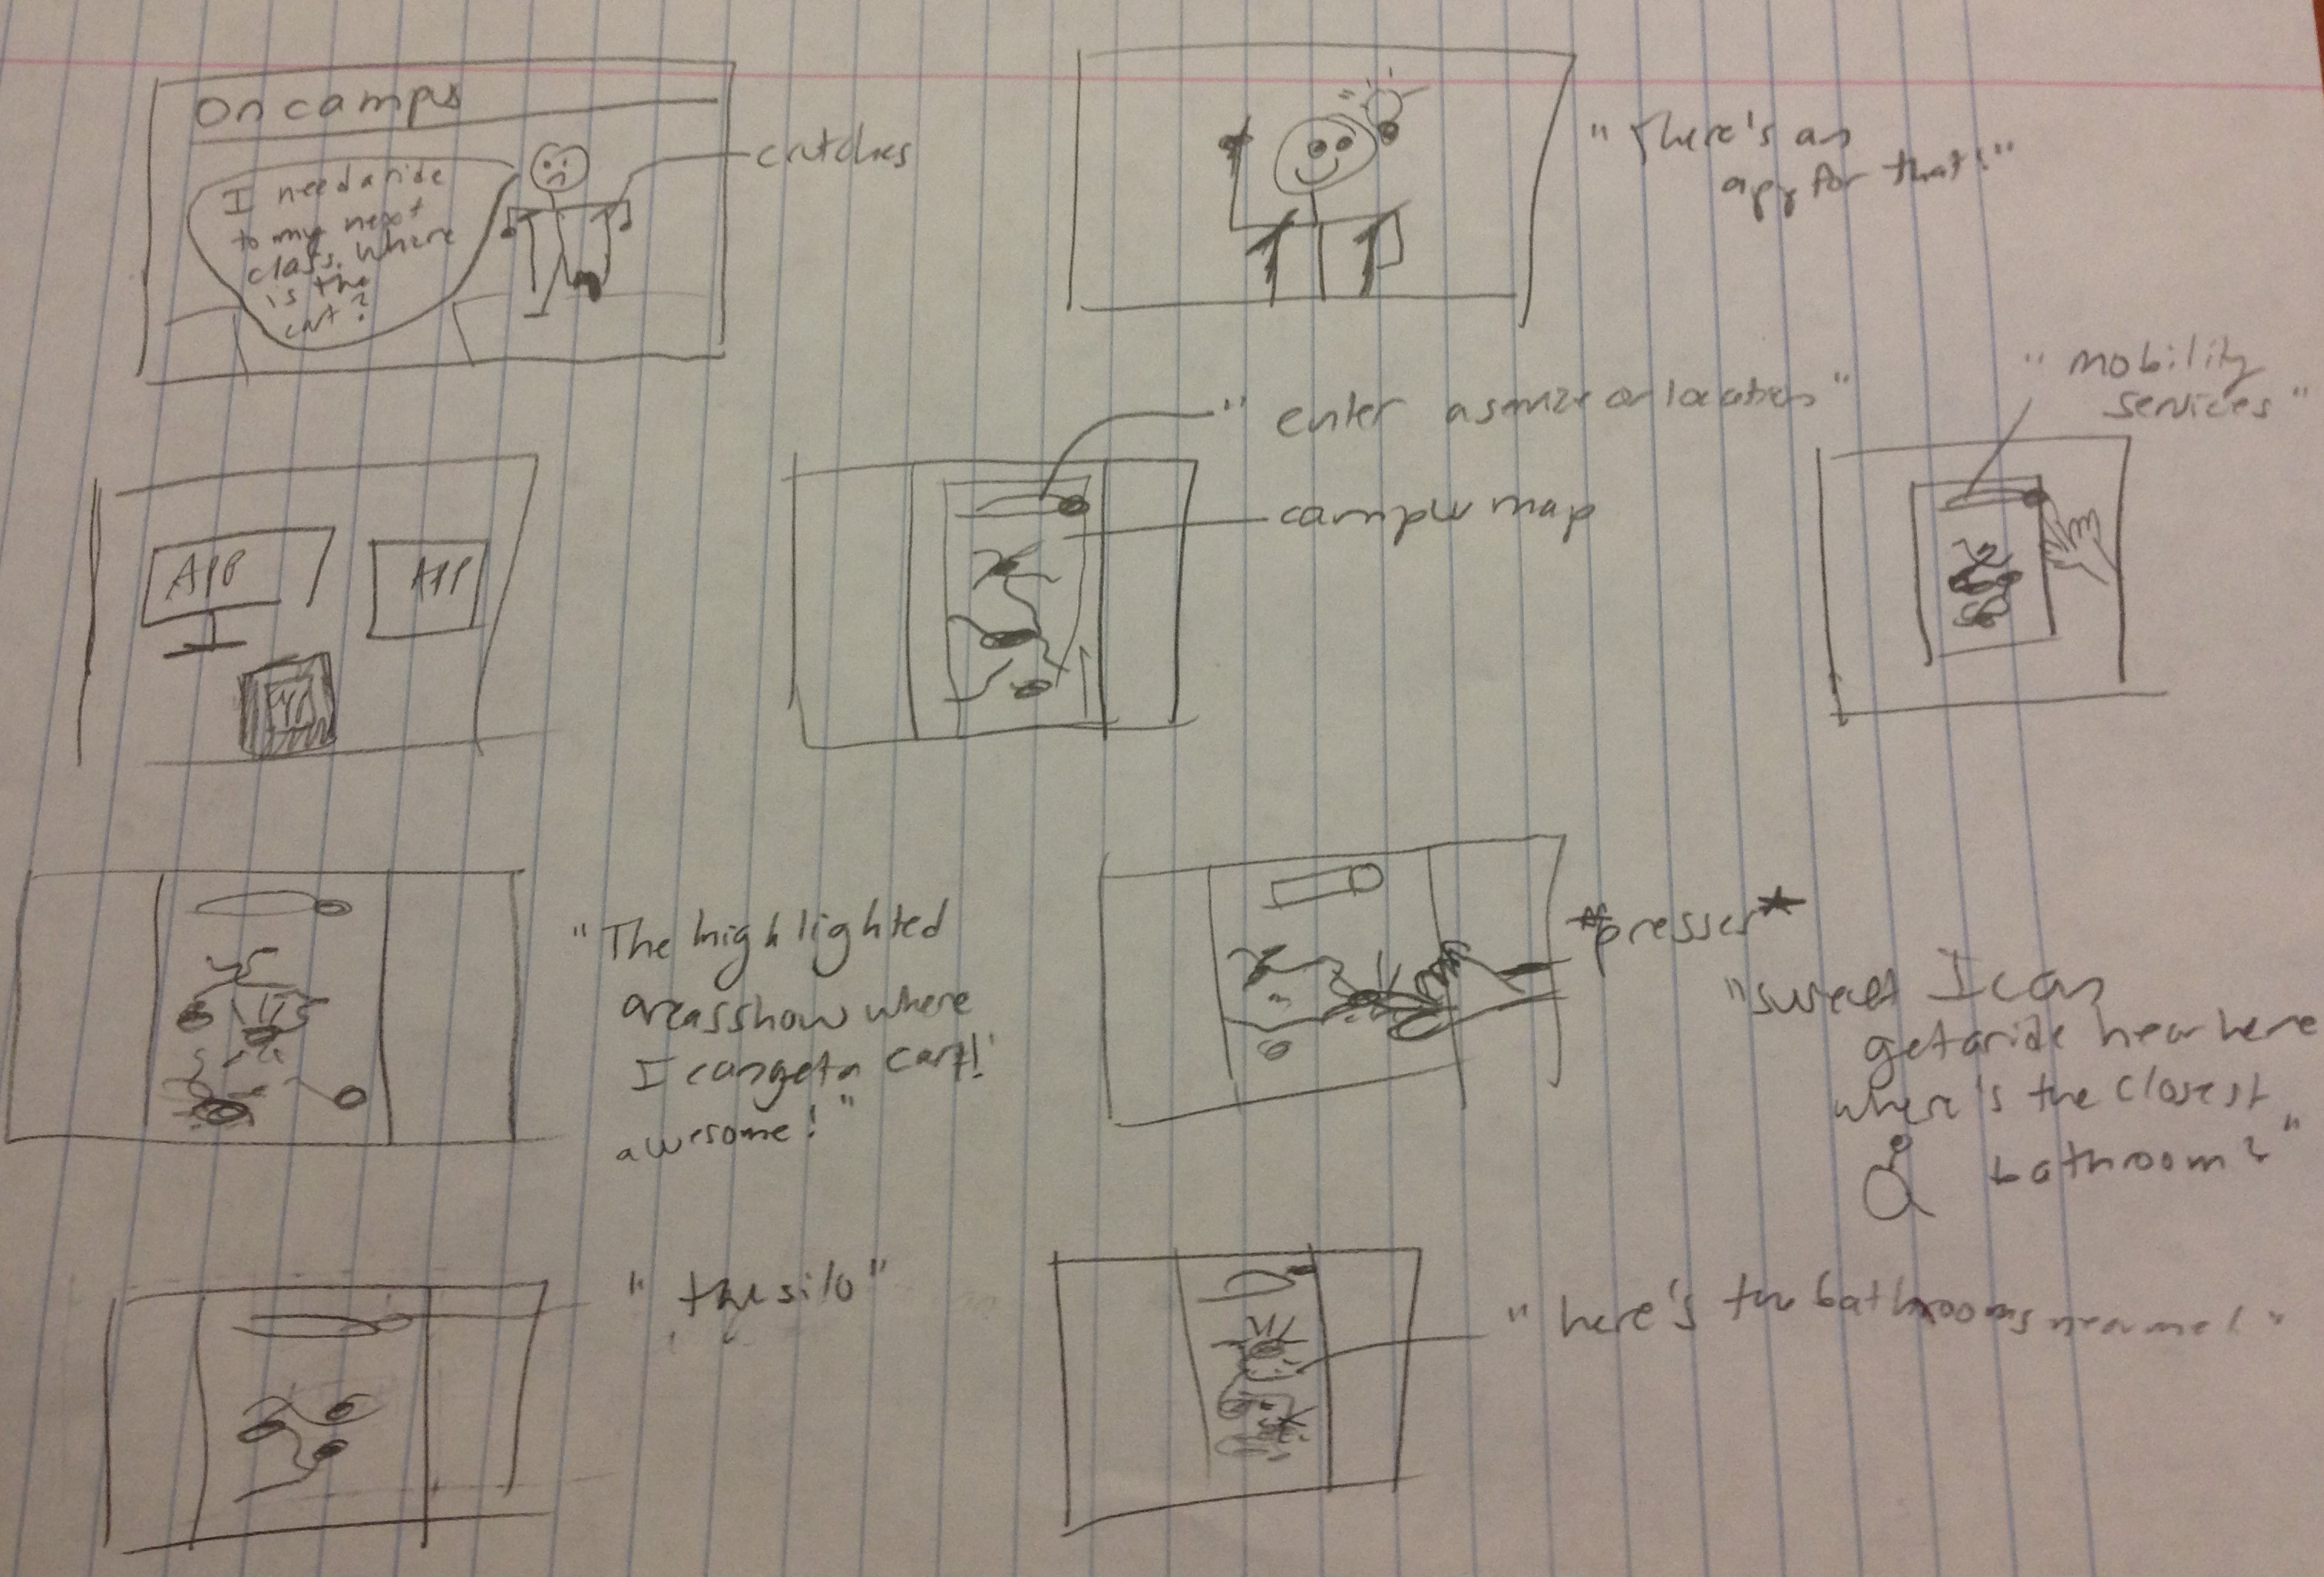 on camps
I need a ride
to my next
class. Where
is the
cart?
crutches
"There's an
app for that!"
APP
APP
"enter a service or location"
campus map
"mobility
services"
"The highlighted
areas show where
I can get a cart!
awesome!"
*presses*
"sweet I can
get a ride near here
where's the closest
bathroom?"
"the silo"
"here's the bathrooms near me!"